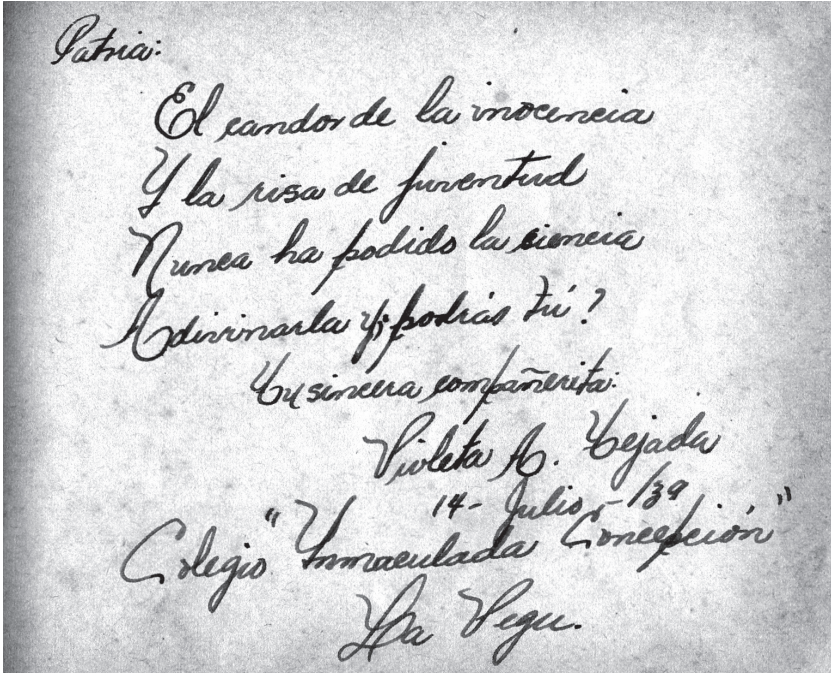 Patria:
El candor de la inocencia
Y la risa de juventud
Nunca ha podido la ciencia
Adivinarla y ¿podrás tú?
Tu sincera compañerita:
Violeta A. Tejada
14- Julio,- /39
Colegio "Ynmaculada Concepción"
La Vega.